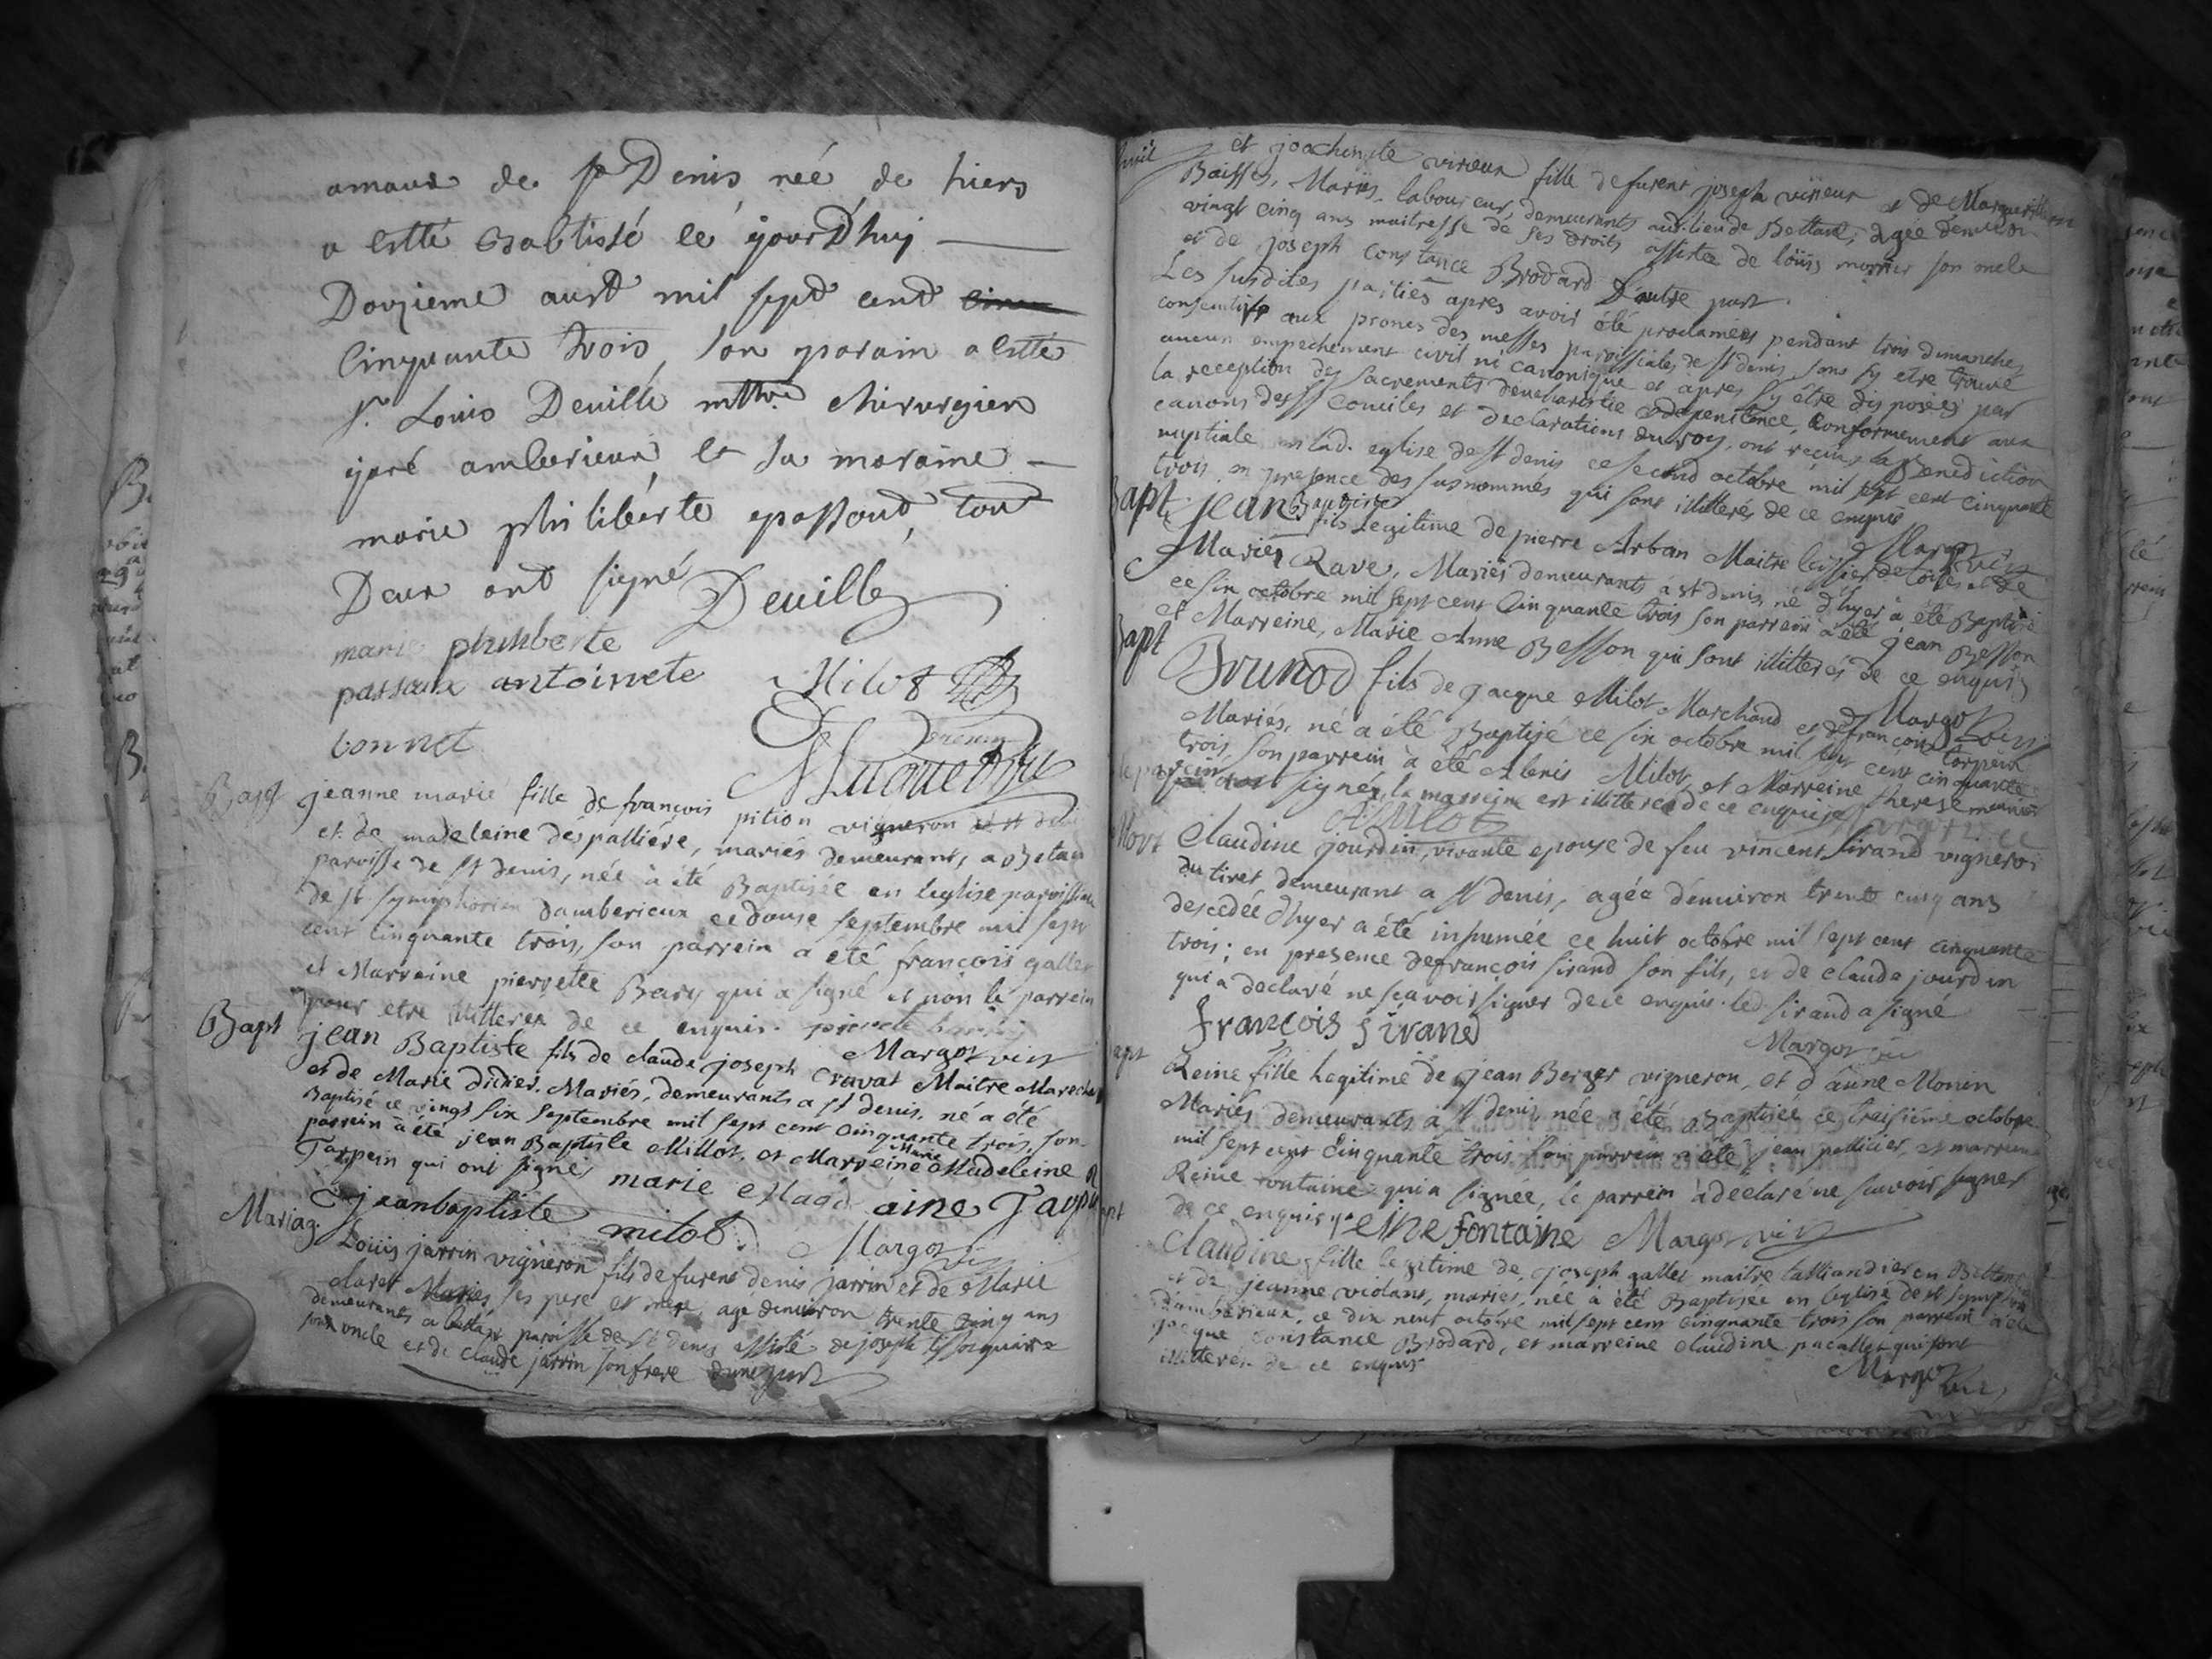 amaus de st Denis née de hiers
a estté Babtissé cé yourD'huy
Douzieme aust mil sept cent
Cinquante trois, son parain a estté
sr. Louis Deuille mttre chirurgien
yuré amberieux et sa maraine
marie philiberte apassout, tout
Deux ont signé Deuille
marie philiberte
passaux antoinete Milot
bonnet
Bapt jeanne marie fille de françois pition vigneron
et de madeleine despalliére, mariés demeurants a Betan
paroisse de st denis, née à été Baptisée en l'eglise paroissiale
de st symphorien d'amberieux ce douse septembre mil sept
cent cinquante trois, son parrein a été françois gallet
et Marreine pierrette Bary qui a signé et non le parrein
pour etre illitteres de ce enquis.
Margot vic
Bapt jean Baptiste fils de claude joseph cravat Maitre Marechal
et de Marie didier. Mariés, demeurants a st denis. né a été
Baptisé ce vingt six septembre mil sept cent cinquante trois, son
parrein à été jean Baptiste Millot, et Marreine Marie Madeleine
Tarpein qui ont signé, marie Mada aine Tarp
jeanbaptiste milot Margot vic
Mariag. Loüis jarrin vigneron fils de furent denis jarrin et de Marie
claret Mariés ses pere et mere, agé denviron trente cinq ans
demeurants a bettan paroisse de st denis assisté de joseph
son oncle et de claude jarrin son frere d'une part
et joachimete virieux fille defurent joseph virieux et de Marguerite
Boisson, Mariés. laboureur, demeurants aud. lieu de Bettant, agée denviron
vingt cinq ans maitresse de ses droits assistée de loüis son
et de joseph constance Brodard D'autre part.
Les susdites parties apres avoir été proclamées pendant trois dimanches
consecutifs aux prones des messes paroissiales de st denis, sans s'y etre trouvé
aucun empechement civil ni canonique et apres s'y être disposées par
la reception des sacrements d'eucharistie et de penitence, conformement aux
canons des sts conciles et declarations du roy, ont reçus la Benediction
nuptiale en lad. eglise de st denis ce second octobre mil sept cent cinquante
trois en presence des susnommés qui sont illitterés de ce enquis
Margot vic
Bapt jean Baptiste fils Legitime de pierre Arban Maitre tissier de toiles et de
Marie Rave, Mariés demeurants à st denis, né d'hyer à été Baptisé
ce six octobre mil sept cent cinquante trois son parrein a été jean Besson
et Marreine, Marie Anne Besson qui sont illitterés de ce enquis
Margot vic
Bapt Brunod fils de jacque Milot Marchand et de françoise torpein
Mariés, né a été Baptisé ce six octobre mil sept cent cinquante
trois, son parrein à été Alexis Milot, et Marreine therese meunier
signé, la marreine est illitterée de ce enquise
A Milot
Mort Claudine jourdin, vivante epouse de feu vincent sirand vigneron
du tiret demeurant a st denis, agée denviron trente cinq ans
descedée d'hyer a été inhumée ce huit octobre mil sept cent cinquante
trois; en presence de françois sirand son fils, et de claude jourdin
qui a declaré ne sçavoir signer de ce enquis. led. sirand a signé
françois sirand Margot vic
Reine fille legitime de jean Berger vigneron, et d'anne Monin
Mariés demeurants à st denis, née a été Baptisée ce treisiéme octobre
mil sept cent cinquante trois. son parrein a été jean pallicier, et marreine
Reine fontaine qui a signée, le parrein a declaré ne sçavoir signer
de ce enquis reine fontaine Margot vic
Claudine fille legitime de joseph gallet maitre talliandier en Bettant
et de jeanne violant, mariés, née à été Baptisée en l'église de st symphorien
d'amberieux, ce dix neuf octobre mil sept cent cinquante trois son parrein a été
jacque constance Brodard, et marreine claudine pacallet qui sont
illitterés de ce enquis
Margot vic